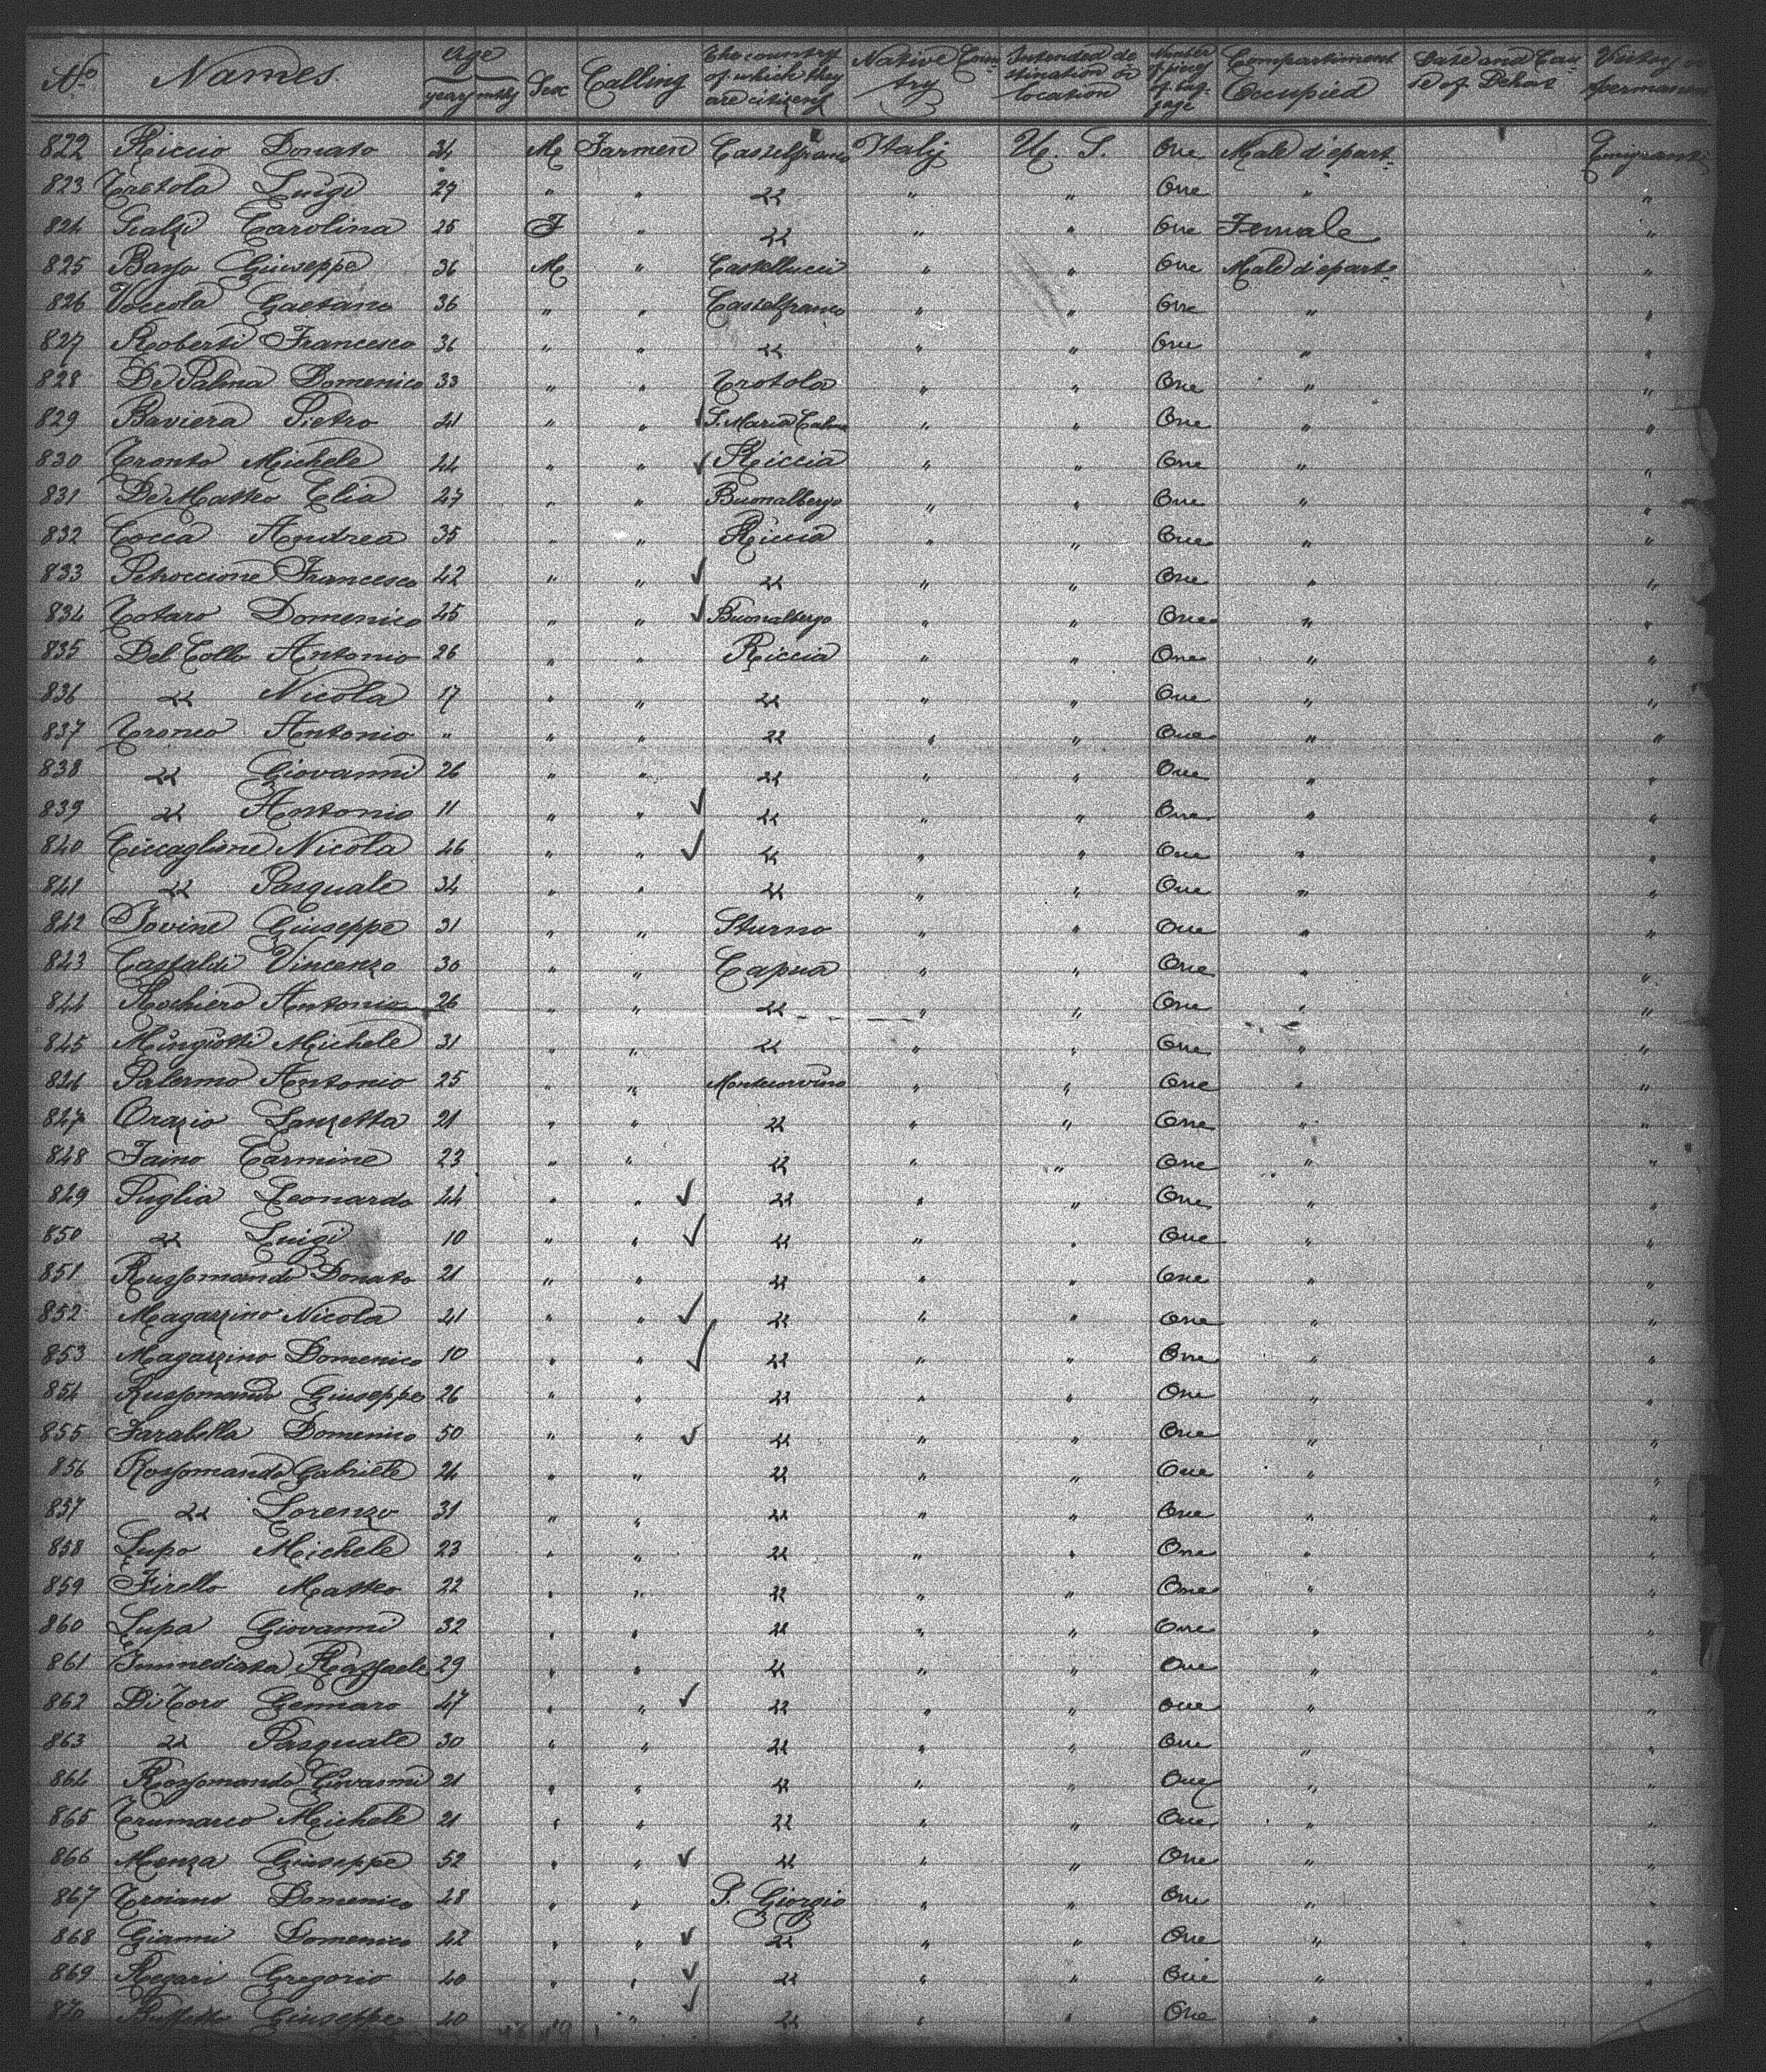 No Names. Age years mths Sex Calling The country of which they are citizens Native Country Intended destination or location Number of pieces of baggage Compartiment Occupied Date and Cause of Dehat
822 Riccio Donato 34 M Farmer Castelfranco Italy U. S. One Male depart. Emigrant
823 Tretola Luigi 27 " " " " " One " "
824 Carolina 25 F " " " " One Female "
825 Basso Giuseppe 36 M " Castellucci " " One Male depart. "
826 Voccola Gaetano 36 " " Castelfranco " " One " "
827 Roberti Francesco 36 " " " " " One " "
828 De Palma Domenico 33 " " Trotola " " One " "
829 Baviera Pietro 41 " " S. Maria " " One " "
830 Tronto Michele 44 " " Riccia " " One " "
831 De Matteo Elia 27 " " Buonalbergo " " One " "
832 Cocca Andrea 35 " " Riccia " " One " "
833 Petroccione Francesco 42 " " " " " One " "
834 Totaro Domenico 45 " " Buonalbergo " " One " "
835 Del Collo Antonio 26 " " Riccia " " One " "
836 " Nicola 17 " " " " " One " "
837 Tronco Antonio " " " " " " One " "
838 " Giovanni 26 " " " " " One " "
839 " Antonio 11 " " " " " One " "
840 Ciccaglione Nicola 46 " " " " " One " "
841 " Pasquale 34 " " " " " One " "
842 Iovine Giuseppe 31 " " Sturno " " One " "
843 Castaldi Vincenzo 30 " " Capua " " One " "
844 Rochiero Antonio 26 " " " " " One " "
845 Mingiotti Michele 31 " " " " " One " "
846 Palermo Antonio 25 " " Montecorvino " " One " "
847 Orazio Lanzetta 21 " " " " " One " "
848 Iaino Carmine 23 " " " " " One " "
849 Puglia Leonardo 44 " " " " " One " "
850 " Luigi 10 " " " " " One " "
851 Russomando Donato 21 " " " " " One " "
852 Magazzino Nicola 41 " " " " " One " "
853 Magazzino Domenico 10 " " " " " One " "
854 Russomando Giuseppe 26 " " " " " One " "
855 Farabella Domenico 50 " " " " " One " "
856 Rossomando Gabriele 24 " " " " " One " "
857 " Lorenzo 31 " " " " " One " "
858 Lupo Michele 23 " " " " " One " "
859 Firello Matteo 22 " " " " " One " "
860 Lupo Giovanni 32 " " " " " One " "
861 Immediata Raffaele 29 " " " " " One " "
862 Di Toro Gennaro 47 " " " " " One " "
863 " Pasquale 30 " " " " " One " "
864 Rossomando Giovanni 21 " " " " " One " "
865 Trumarco Michele 21 " " " " " One " "
866 Menza Giuseppe 52 " " " " " One " "
867 Troiano Domenico 48 " " S. Giorgio " " One " "
868 Gianni Domenico 42 " " " " " One " "
869 Regari Gregorio 40 " " " " " One " "
870 Giuseppe 40 " " " " One "